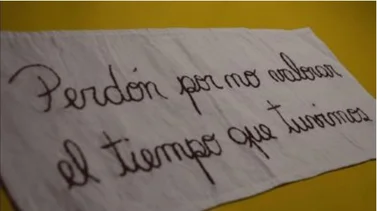 Perdón por no valorar
el tiempo que tuvimos